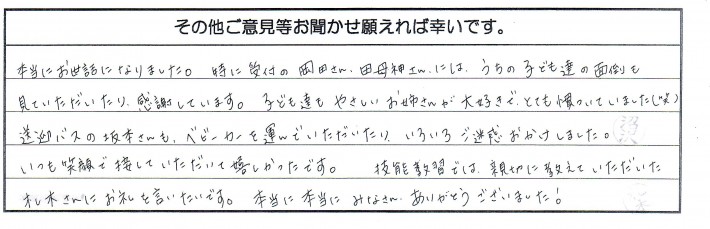 その他ご意見等お聞かせ願えれば幸いです。
本当にお世話になりました。 特に受付の岡田さん、田母神さんには、うちの子ども達の面倒も
見ていただいたり、感謝しています。 子ども達も やさしいお姉さんが大好きで、とても慣ついていました(笑)
送迎バスの坂本さんも、ベビーカーを運んでいただいたり、いろいろご迷惑おかけしました。
いつも笑顔で接していただいて嬉しかったです。 技能教習では、親切に教えていただいた
札木さんにお礼を言いたいです。 本当に本当に みなさん、ありがとうございました!